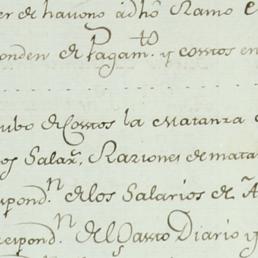 er de havono adhõ Ramo e
onden de Pagam.to y costos en
ubo de Costos la Matanza
os Salar.s, Raziones de mata
spond.n de los Salarios de A
respond.n del Gasto Diario y